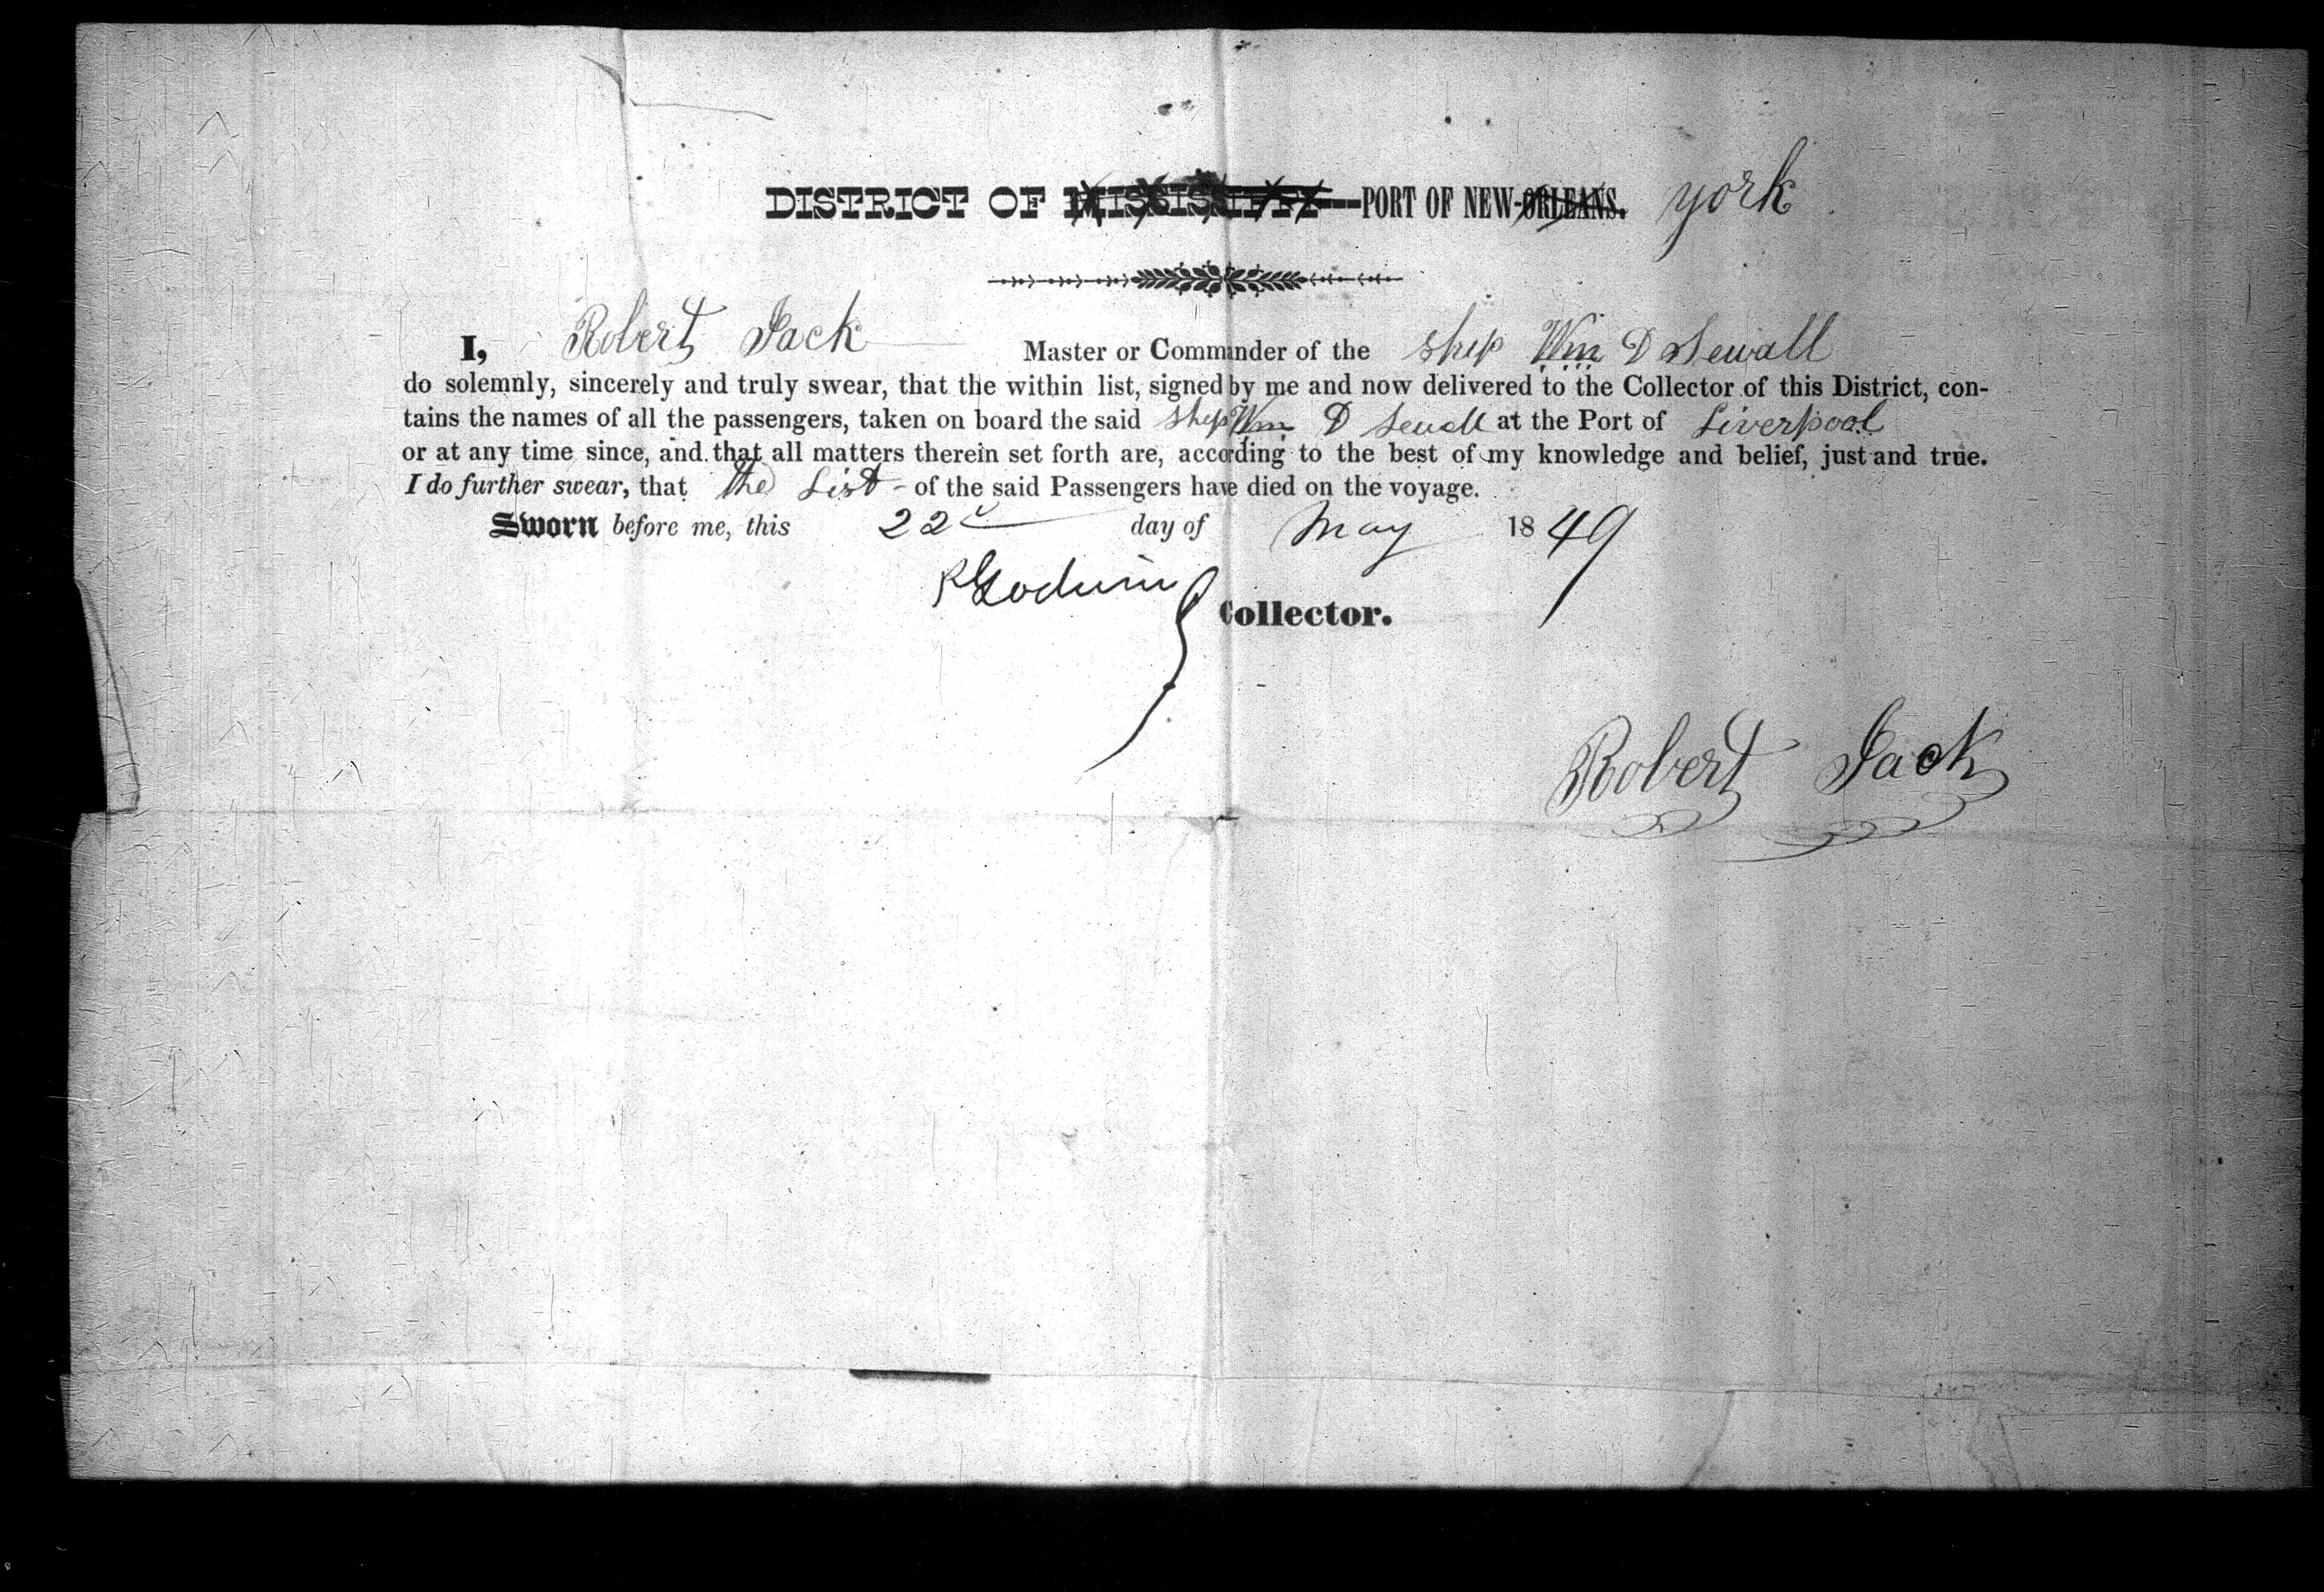 DISTRICT OF MISSISSIPPI—PORT OF NEW-ORLEANS. york
I, Robert Jack Master or Commander of the ship Wm D Sewall
do solemnly, sincerely and truly swear, that the within list, signed by me and now delivered to the Collector of this District, con-
tains the names of all the passengers, taken on board the said ship Wm D Sewall at the Port of Liverpool
or at any time since, and that all matters therein set forth are, according to the best of my knowledge and belief, just and true.
I do further swear, that the List - of the said Passengers have died on the voyage.
Sworn before me, this 22d day of May 1849
Godwin
Collector.
Robert Jack